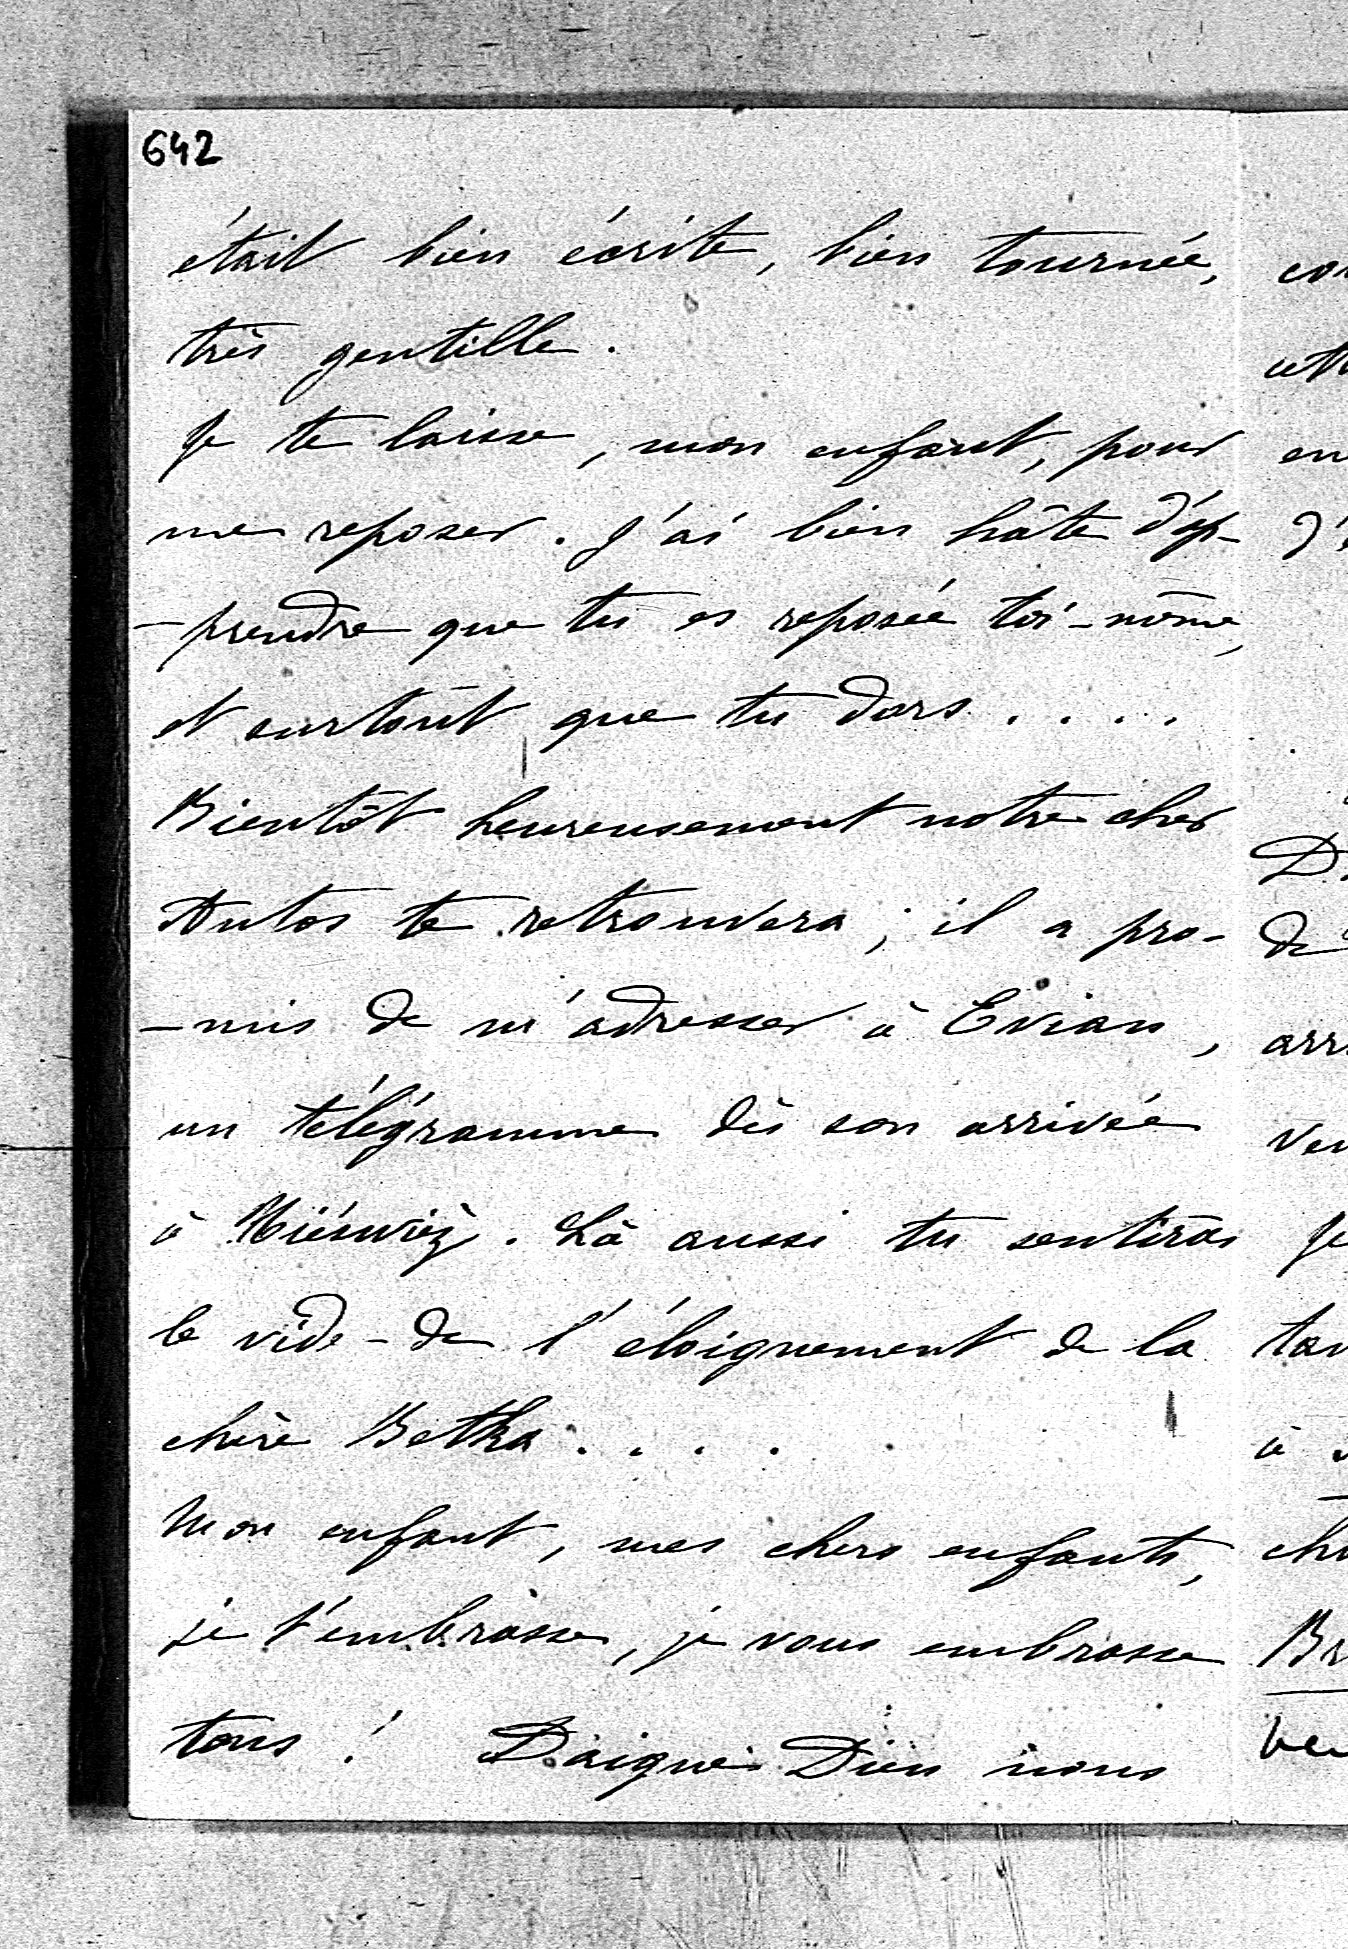 642
était bien écrite, bien tournée,
très gentille.
Je te laisse, mon enfant, pour
me reposer. J'ai bien hâte d'ap-
-prendre que tu es reposée toi-même,
et surtout que tu dors . . . .
Bientôt heureusement notre cher
Antos te retrouvera ; il a pro-
-mis de m'adresser à Evian,
un télégramme dès son arrivée
à . Là aussi tu sentiras
le vide - de l'éloignement de la
chère Betka . . . .
Mon enfant, mes chers enfants,
je t'embrasse, je vous embrasse
tous ! Daigne Dieu nous